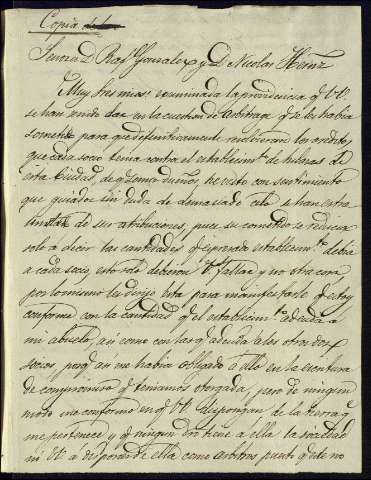 Copia
Senores D. Raf. Gonzalez y D. Nicolas
Muy Sres mios: examinada la providencia q. VV.
se han servido dar en la cuestion de arbitrage q. se les habia
para que definitivamente los creditos
que cada socio tenia contra el establecim.to de
esta Ciudad, de q. somos dueños, he visto con sentimiento
que guiados sin duda de demaciado celo se han
de sus atribuciones, pues su cometido se reducia
solo á decir las cantidades q. el establecim.to debia
a cada socio, esto solo debieron VV. fallar y no otra cosa
por lo mismo les dirijo esta para manifestarle q. estoy
conforme con la cantidad q. el establecim.to adeuda a
mi abuelo, asi como con las q. adeuda a los otros dos
socios, porq. asi me habia obligado á ello en la escritura
de compromiso q. teniamos otorgada, pero de ningun
modo estoy conforme en q. VV. dispongan de la tierra q.
me pertenece y q. ningun dro tiene á ella la sociedad
ni VV. á disponer de ella como arbitros puesto q. de no